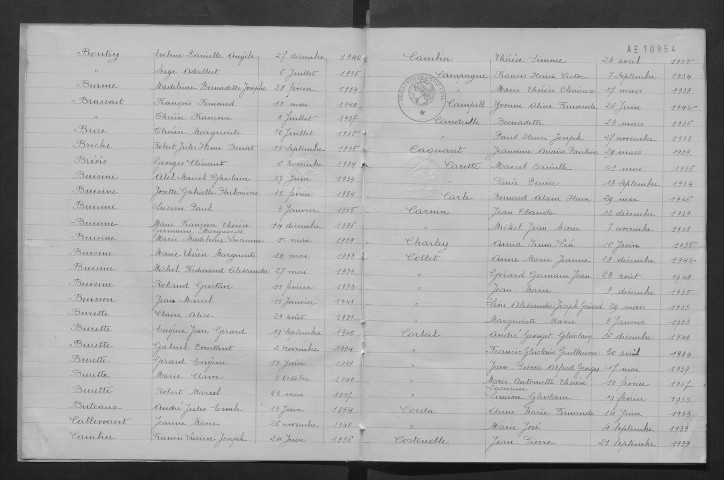 Boutry Evelyne Danielle Angèle 27 décembre 1940
" Serge Adalbert 6 Juillet 1935
Madeleine Bernadette Josèphe 28 février 1934
François Fernand 12 mai 1940
" Thérèse Françoise 9 Juillet 1937
Brise Thérèse Marguerite 20 Juillet 1935
Briche Robert Jules Henri Benoit septembre 1935
Briois Georges Clément 6 novembre 1934
Buisine Abel Marcel Ghislain 27 Juin 1934
Buisine Josette Gabrielle Philomène 15 février 1934
Buisine Lucien Paul 3 Janvier 1935
Buisine Marie Françoise Thérèse 14 décembre 1935
Germaine Marguerite
Buisine Marie Madeleine Lucienne mai 1939
Buisine Marie Thérèse Marguerite mai 1933
Buisine Michel Ferdinand Alexandre 27 mai 1934
Buisine Roland Gustave 11 février 1933
Buisson Jean Marcel 15 Janvier 1941
Burette Claire Alice 29 août 1939
Burette Eugène Jean Gérard 19 septembre 1940
Burette Gabriel Constant 2 novembre 1934
Burette Gérard Eugène
Burette Marie Claire octobre 1940
Burette Robert Marcel 23 mai 1937
Buteaux André Jules Emile 13 Juin 1934
Callewaert Jeanne Marie 26 novembre 1940
Cambier Francis Lucien Joseph 24 Juin 1936
AE10954
Cambier Thérèse Simone 28 août 1935
Campagne Francis Henri Victor 7 septembre 1934
" Marie Thérèse 17 mars 1939
Yvonne Aline Fernande 26 Juin
Bernadette 23 mars 1936
" Paul Henri Joseph 27 novembre 1933
Cagnart mars 1939
Carette Marcel Camille 21 mai 1936
" 18 septembre 1934
Carle Bernard Alain Henri 29 mai 1936
Carnin Jean Claude 12 décembre 1939
" Michel Jean Marie 7 novembre 1938
Charley Anna Irma Léa 10 Juin 1935
Collet Anne Marie Jeanne 28 décembre
" Gérard Germain Jean 29 août 1940
" Jean Marie 9 décembre 1935
" Léon Alexandre Joseph Gérard mars 1933
" Marguerite Marie 3 Janvier 1933
Corbeil André Georges Ghislain 16 décembre 1940
" Francis Ghislain Guillaume 30 août 1934
" Jean Pierre Alfred Georges 17 mai 1939
" Marie Antoinette Thérèse février 1937
Lucienne
" Simone Ghislaine 19 février 1933
Corda Anne Marie Fernande 24 Juin 1933
" Marie José 4 septembre 1939
Costenoble Jean Pierre 21 septembre 1939